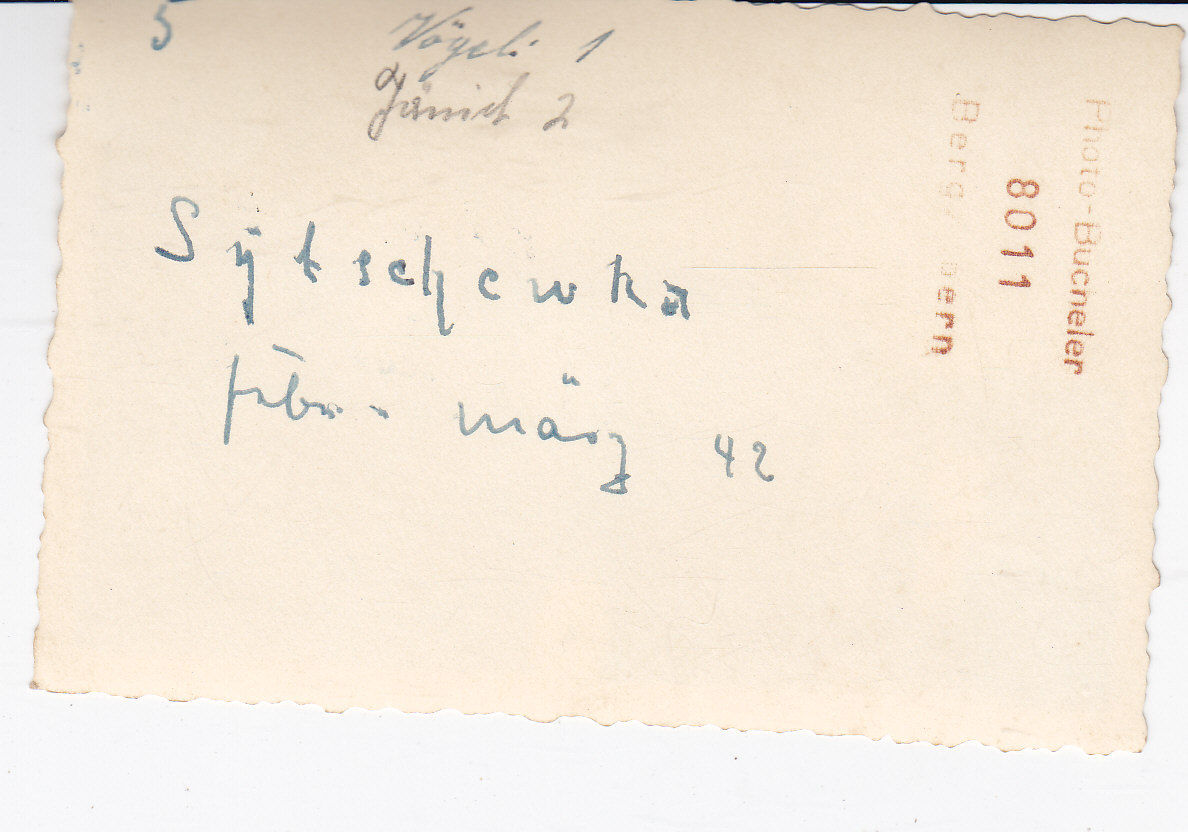 5
Vögeli 1
Jänich 2
Sÿtschewka
febr. - märz 42
Photo-Bucheler
8011
Berg